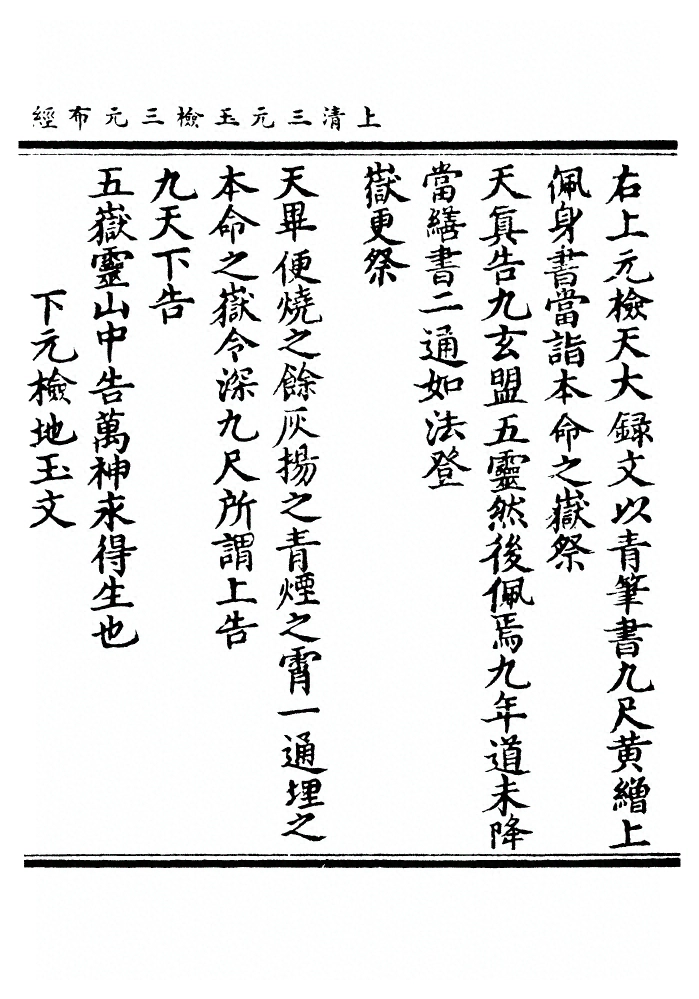 上清三元玉檢三元布經
右上元檢天大録文以青筆書九尺黄繒上
佩身書當詣本命之嶽祭
天眞告九玄盟五靈然後佩焉九年道未降
當繕書二通如法登
嶽更祭
天畢便燒之餘灰揚之青煙之霄一通埋之
本命之嶽令深九尺所謂上告
九天下告
五嶽靈山中告萬神求得生也
下元檢地玉文